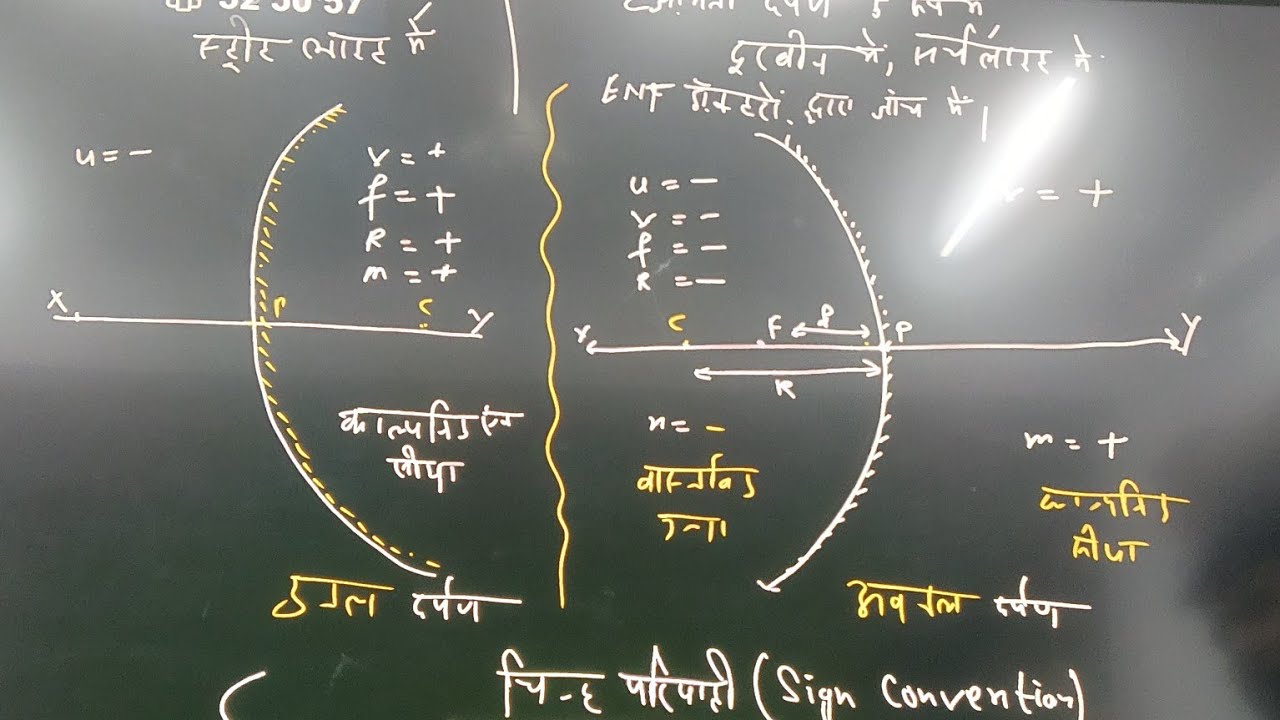 स्ट्रीट लाइट में
दूरबीन में, सर्चलाइट में
ENF डॉक्टरों द्वारा जांच में।
u = -
v = +
f = +
R = +
m = +
X P C Y
काल्पनिक एवं
सीधा
उत्तल दर्पण
u = -
v = -
f = -
R = -
v = +
X C F f P Y
R
m = -
वास्तविक
उल्टा
m = +
काल्पनिक
सीधा
अवतल दर्पण
चिन्ह परिपाटी (Sign Convention)